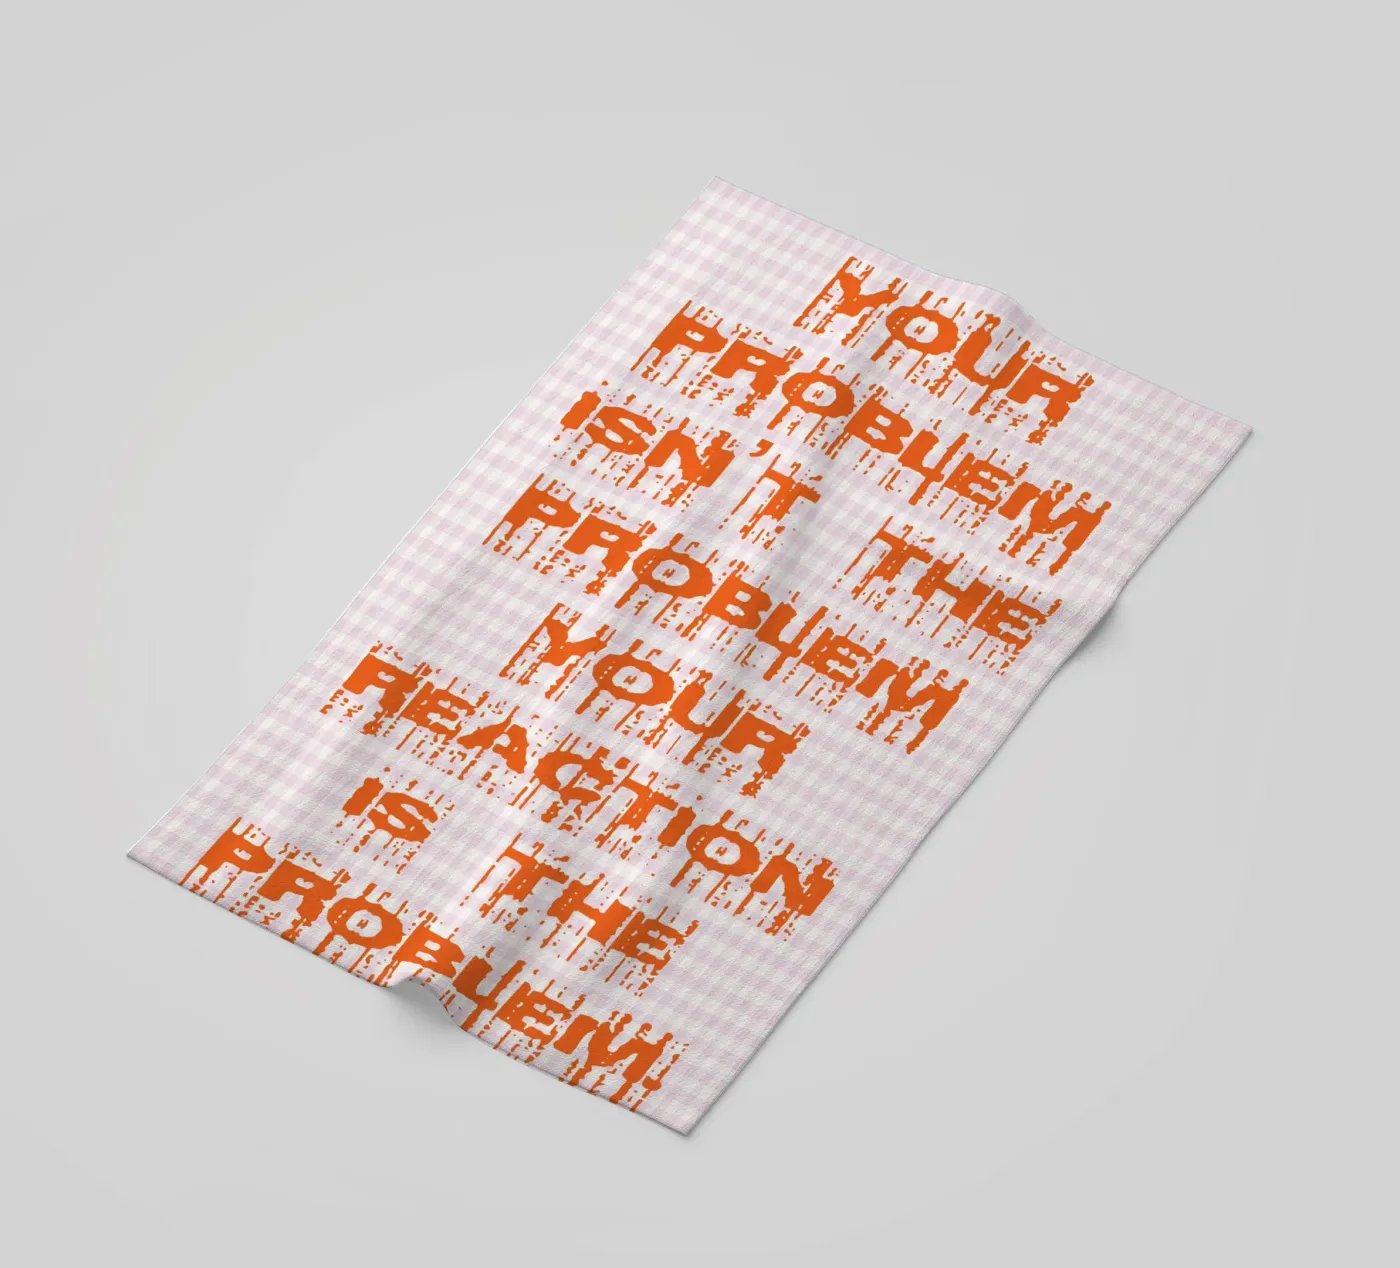 YOUR
PROBLEM
ISN'T THE
PROBLEM
YOUR
REACTION
IS THE
PROBLEM.